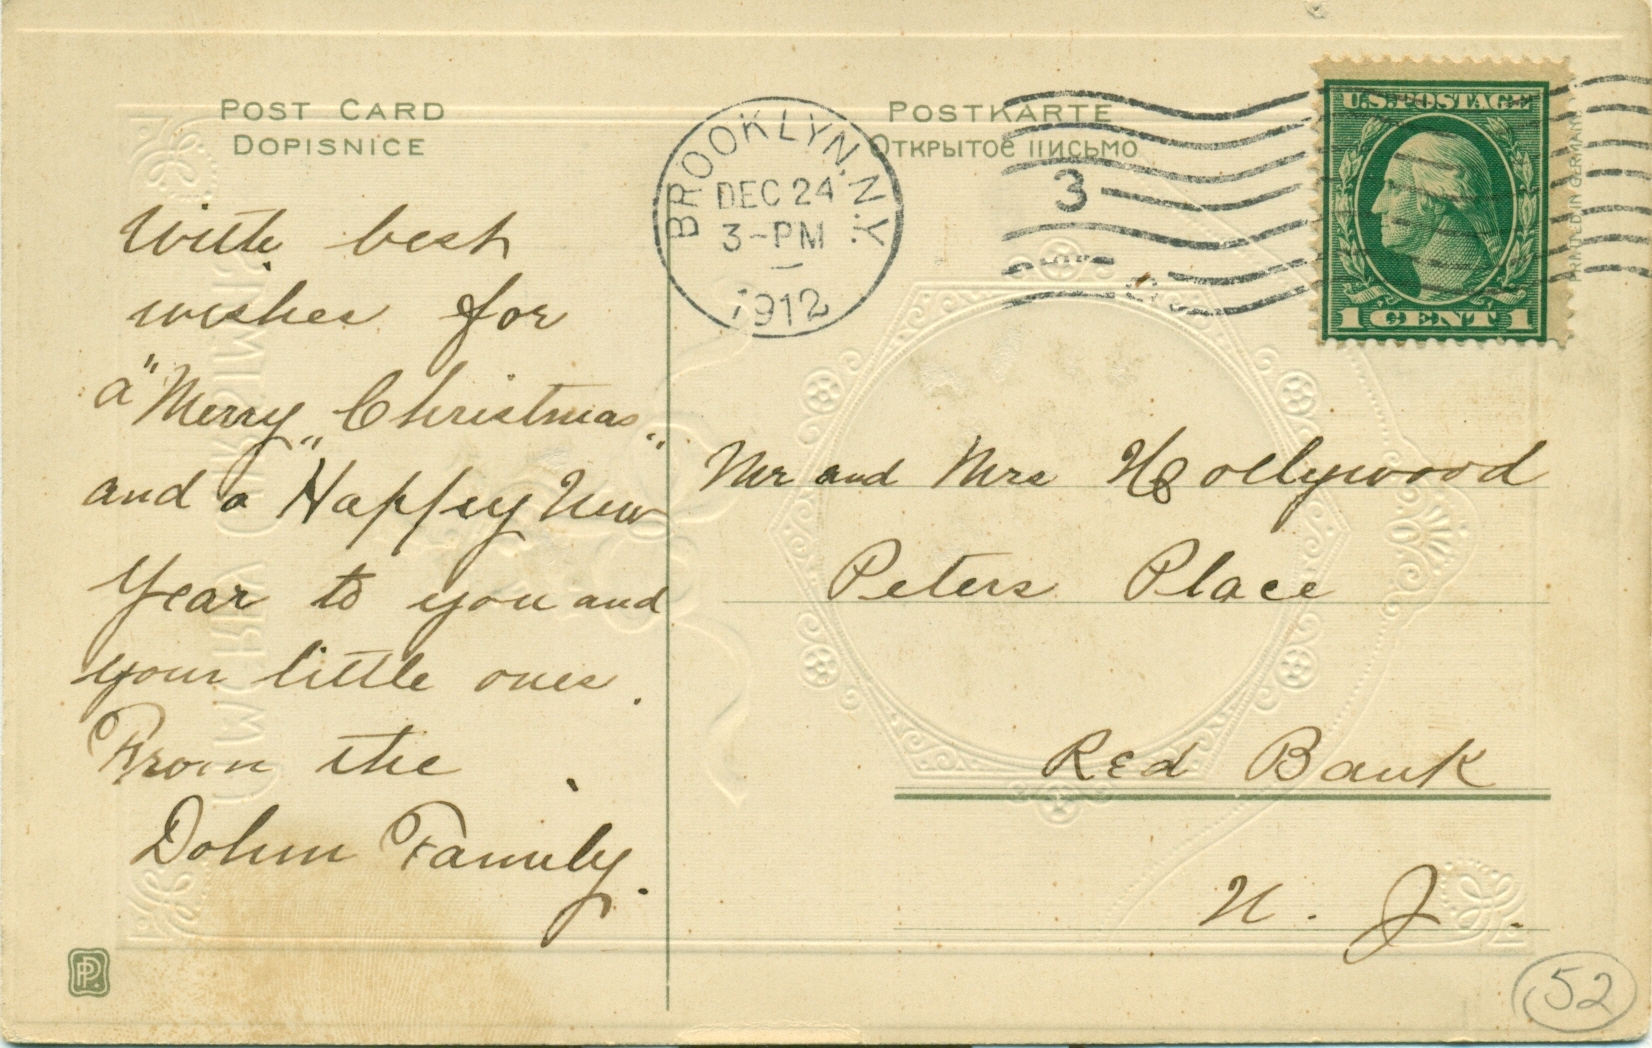 POST CARD
DOPISNICE
POSTKARTE
Открытое письмо
BROOKLYN, N.Y.
DEC 24
3-PM
1912
3
U.S. POSTAGE
1 CENT 1
PRINTED IN GERMANY
With best
wishes for
a "Merry Christmas"
and a "Happy New
Year to you and
your little ones.
From the
Dohm Family.
Mr and Mrs Hollywood
Peters Place
Red Bank
N. J.
PP.
52